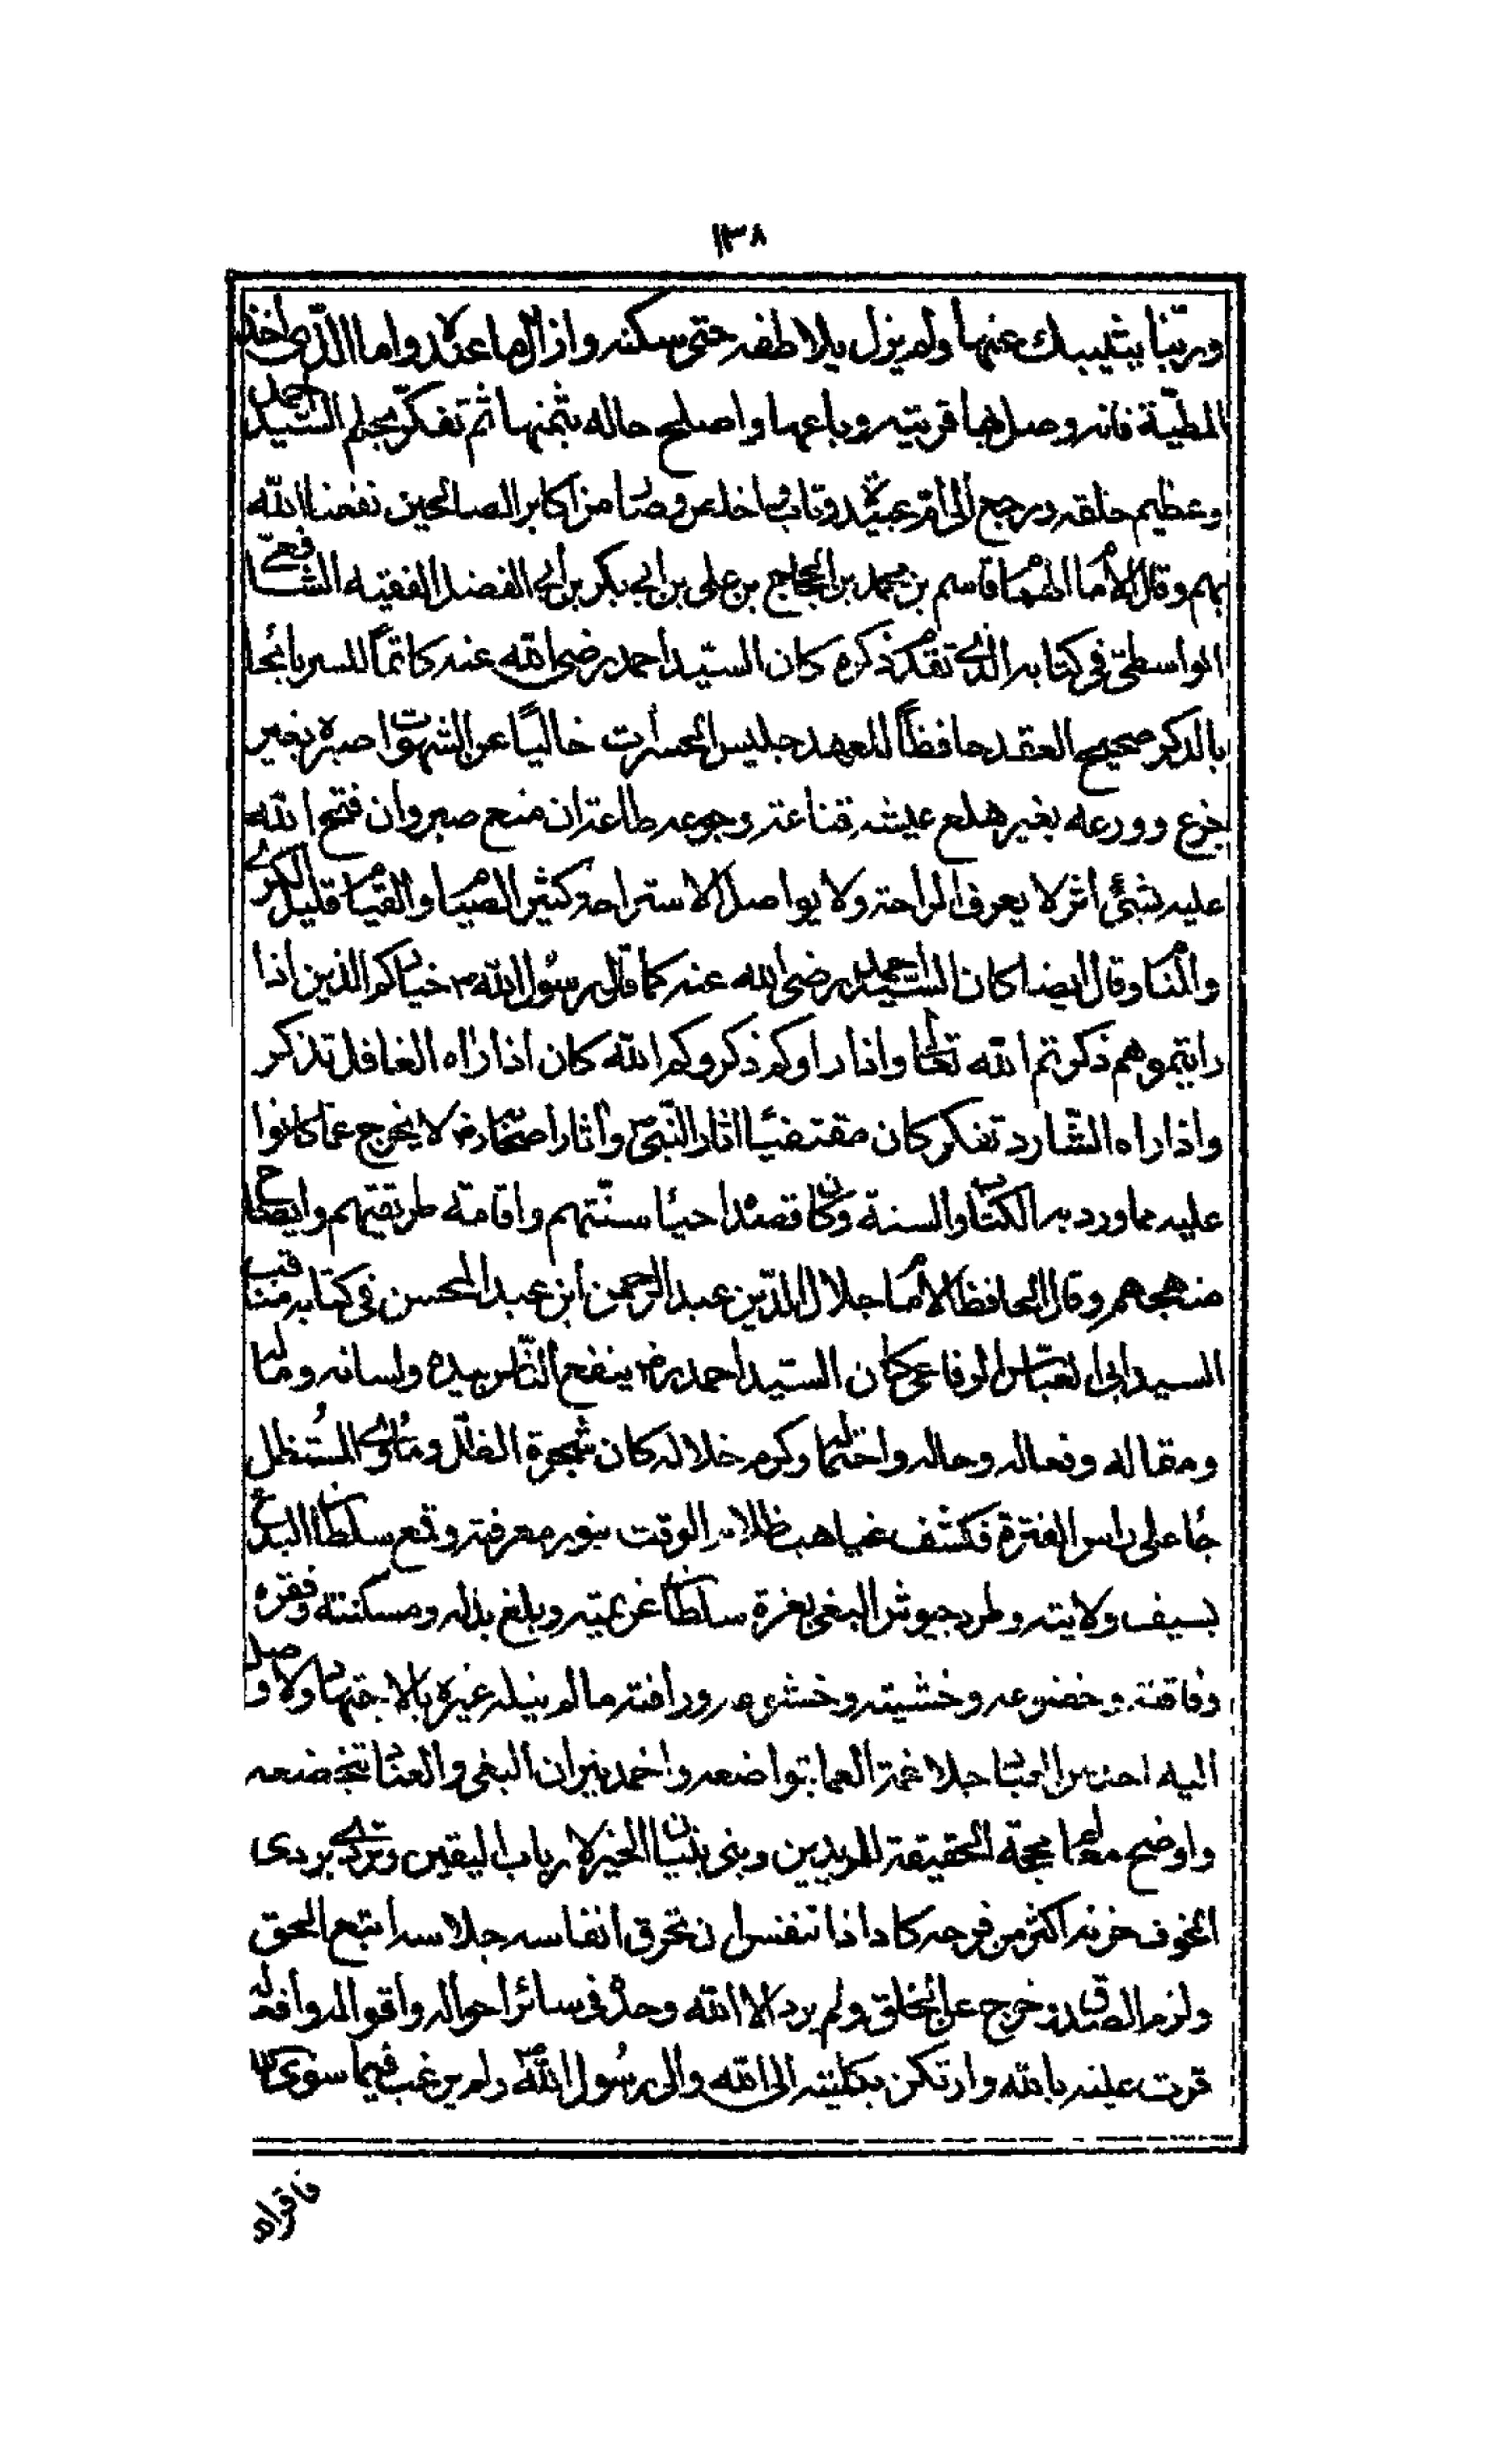 ١٣٨
وربنا يثيبك عنها ولم يزل يلاطفه حتى سكنه وازال ما عنده واما الذى اخذ
المطيّة فانه وصل بها قريته وباعها واصلح حاله بثمنها ثم تفكّر بحلم السّيد احمد
وعظيم خلقه ورجع الى ام عبيدة وتاب واخذ عنه وصار من اكابر الصالحين نفعنا الله
بهم وقال الأمام الهمام قاسم بن محمد بن الحجاج بن على بن ابى بكر بن ابى الفضل الفقيه الشافعىّ
الواسطىّ فى كتابه الذى تقدم ذكره كان السيّد احمد رضى الله عنه كاتماً للسر بائحا
بالذكر صحيح العقد حافظاً للعهد جليس الحسرات خالياً عن الشهوات صبره بغير
جزع وورعه بغير هلع عيشه قناعته وجوعه طاعته ان منع صبر وان فتح الله
عليه شئ اثر لا يعرف الراحة ولا يواصل الاستراحة كثير الصيام والقيام قليل الكرى
والمنام وقال ايضا كان السيد احمد رضى الله عنه كما قال رسول الله ص خياركم الذين اذا
رايتموهم ذكرتم الله تعالى واذا راوكم ذكروكم الله كان اذا راه الغافل تذكر
واذا راه الشّارد تفكر كان مقتفيا اثار النّبىّ ص وأثار اصحابه رض لا يخرج عما كانوا
عليه مما ورد به الكتاب والسنة وكان قصده احياء سنّتهم واقامة طريقتهم وايضاح
منهجهم وقال الحافظ الأمام جلال الدّين عبد الرحمن ابن عبد المحسن فى كتابه مناقب
السيد ابى العبّاس الرفاعى كان السيّد احمد رض ينفع النّاس بيده ولسانه وماله
ومقاله وفعاله وحاله واخلاقه وكرم خلاله كان شجرة الظلّ ومأوى المستظل
جاء على راس الفترة فكشف غياهب ظلام الوقت بنور معرفته وقمع سلطان البدع
بسيف ولايته وطرد جيوش البغى بغزة سلطان عزيمته وبلغ بذله ومسكنته وفقره
وفاقته وخضوعه وخشيته وخشوعه ورافته ما لم ينله غيره بالاجتهاد ولا وصل
اليه احد من العباد جلا غمة العما بتواضعه واخمد نيران البغى والعناد بتخضعه
واوضح معالم محجة الحقيقة للمريدين وبنى بنيان الخير لارباب اليقين وتردى بردى
الخوف حزنه اكثر من فرحه كاد اذا تنفس ان تحرق انفاسه جلاسه اتبع الحق
ولزم الصدق وخرج عن الخلق ولم يرد الا الله وحده فى سائر احواله واقواله وافعاله
قرت عينه بالله وارتكن بكليته الى الله والى رسول الله ص ولم يرغب فيما سوى الله
فاقواله